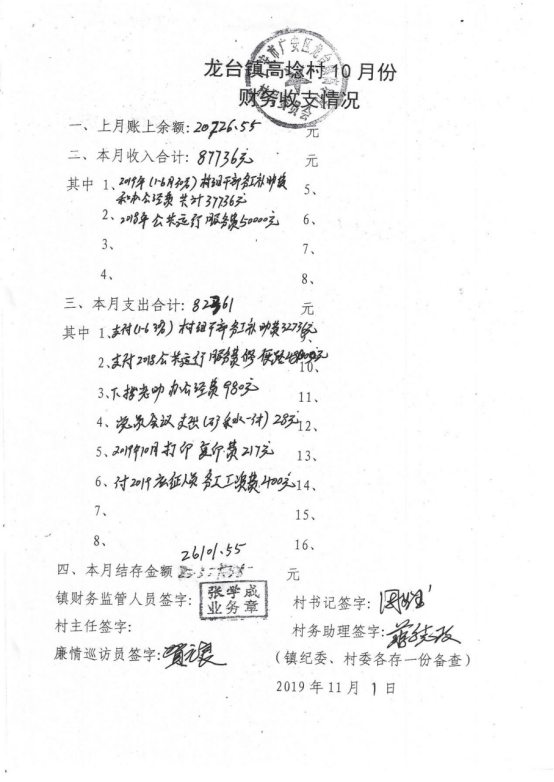 龙台镇高埝村10月份
财务收支情况
一、上月账上余额：20726.55 元
二、本月收入合计：87736元 元
其中 1、2019年(1-6月 )村组干部务工补助费 5、
和办公经费 共计37736元
2、2018年公共运行服务费50000元 6、
3、 7、
4、 8、
三、本月支出合计：82361 元
其中 1、支付(1-6 )村组干部务工补助费
2、支付2018公共运行服务费 10、
3、下拨 办公经费980元 11、
4、党员会议支出( 水一件)28元 12、
5、2019年10月打印复印费217元 13、
6、付2019应征人员务工工资费400元 14、
7、 15、
8、 16、
26101.55
四、本月结存金额 元
镇财务监管人员签字： 张学成 业务章 村书记签字：
村主任签字： 村务助理签字：
廉情巡访员签字： (镇纪委、村委各存一份备查)
2019年11月1日